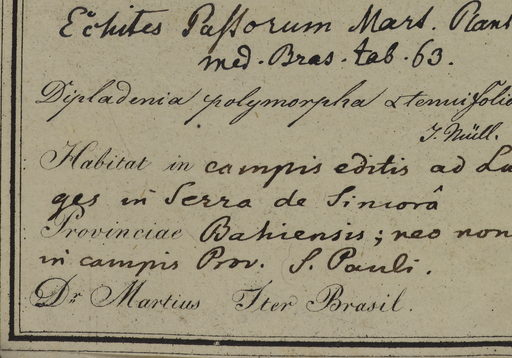 Echites Passorum Mart. Plant
med. Bras. tab. 63.
Dipladenia polymorpha α tenuifolia
J. Müll.
Habitat in campis editis ad La
ges in Serra de Sincorâ
Provinciae Bahiensis; nec non
in campis Prov. S. Pauli.
Dr Martius Iter Brasil.